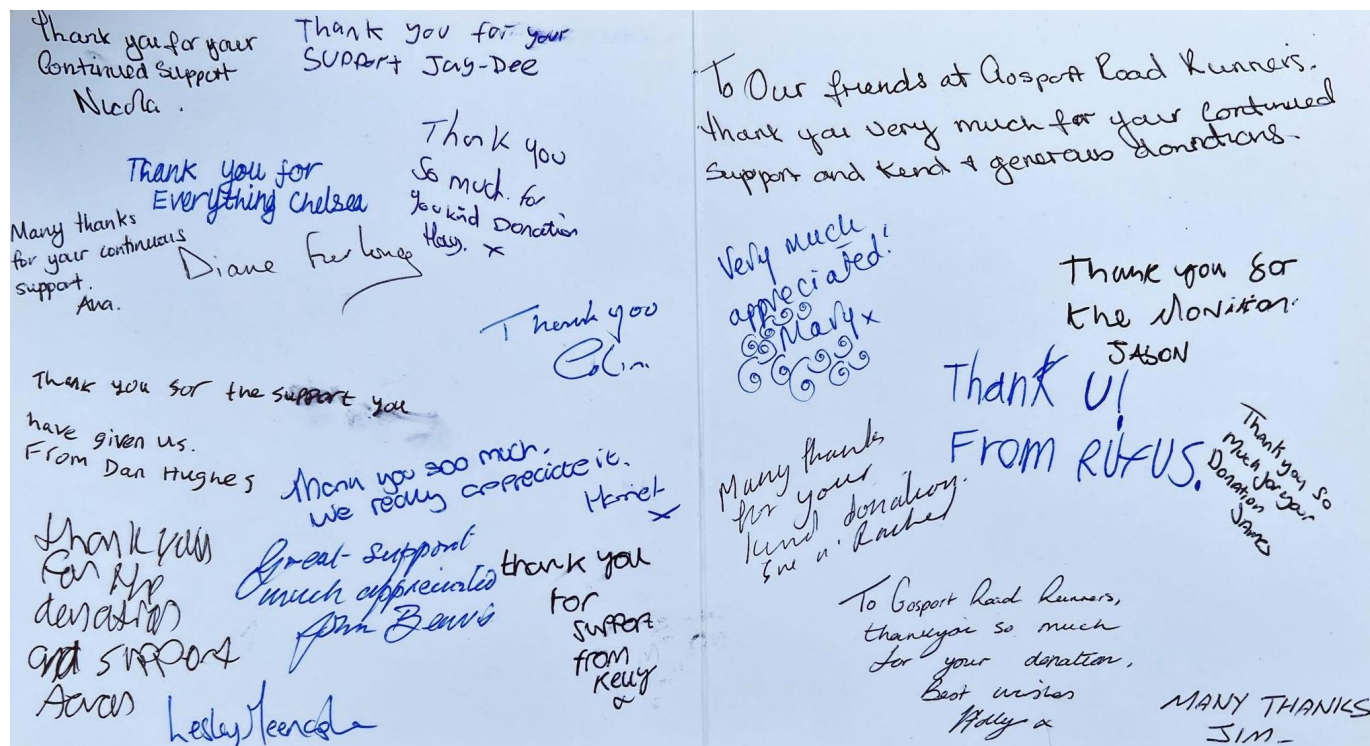 Thank you for your
Continued Support
Nicola.
Thank you for your
SUPPORT Jay-Dee
Thank you
So much. for
you kind Donation
x
Thank you for
Everything Chelsea
Many thanks
for your continuous
support.
Ana.
Diane Furlonge
Thank you
Colin.
Thank you for the support you
have given us.
From Dan Hughes
Thank you soo much.
We really appreciate it.
Harriet
x
thank you
for the
donation
and support
Aaron
Great support
much appreciated
John Beavis
thank you
for
support
from
Kelly
x
Lesley
To Our friends at Gosport Road Runners.
thank you very much for your continued
support and kind & generous donations.
Very much
appreciated!
Mary x
Thank you for
the donation.
JASON
Thank U!
From RUFUS.
Many thanks
for your
kind donation.
Sue n' Rachel
Thank you so
much for your
Donation
JAMES
To Gosport Road Runners,
thankyou so much
for your donation,
Best wishes
Holly x
MANY THANKS
JIM-